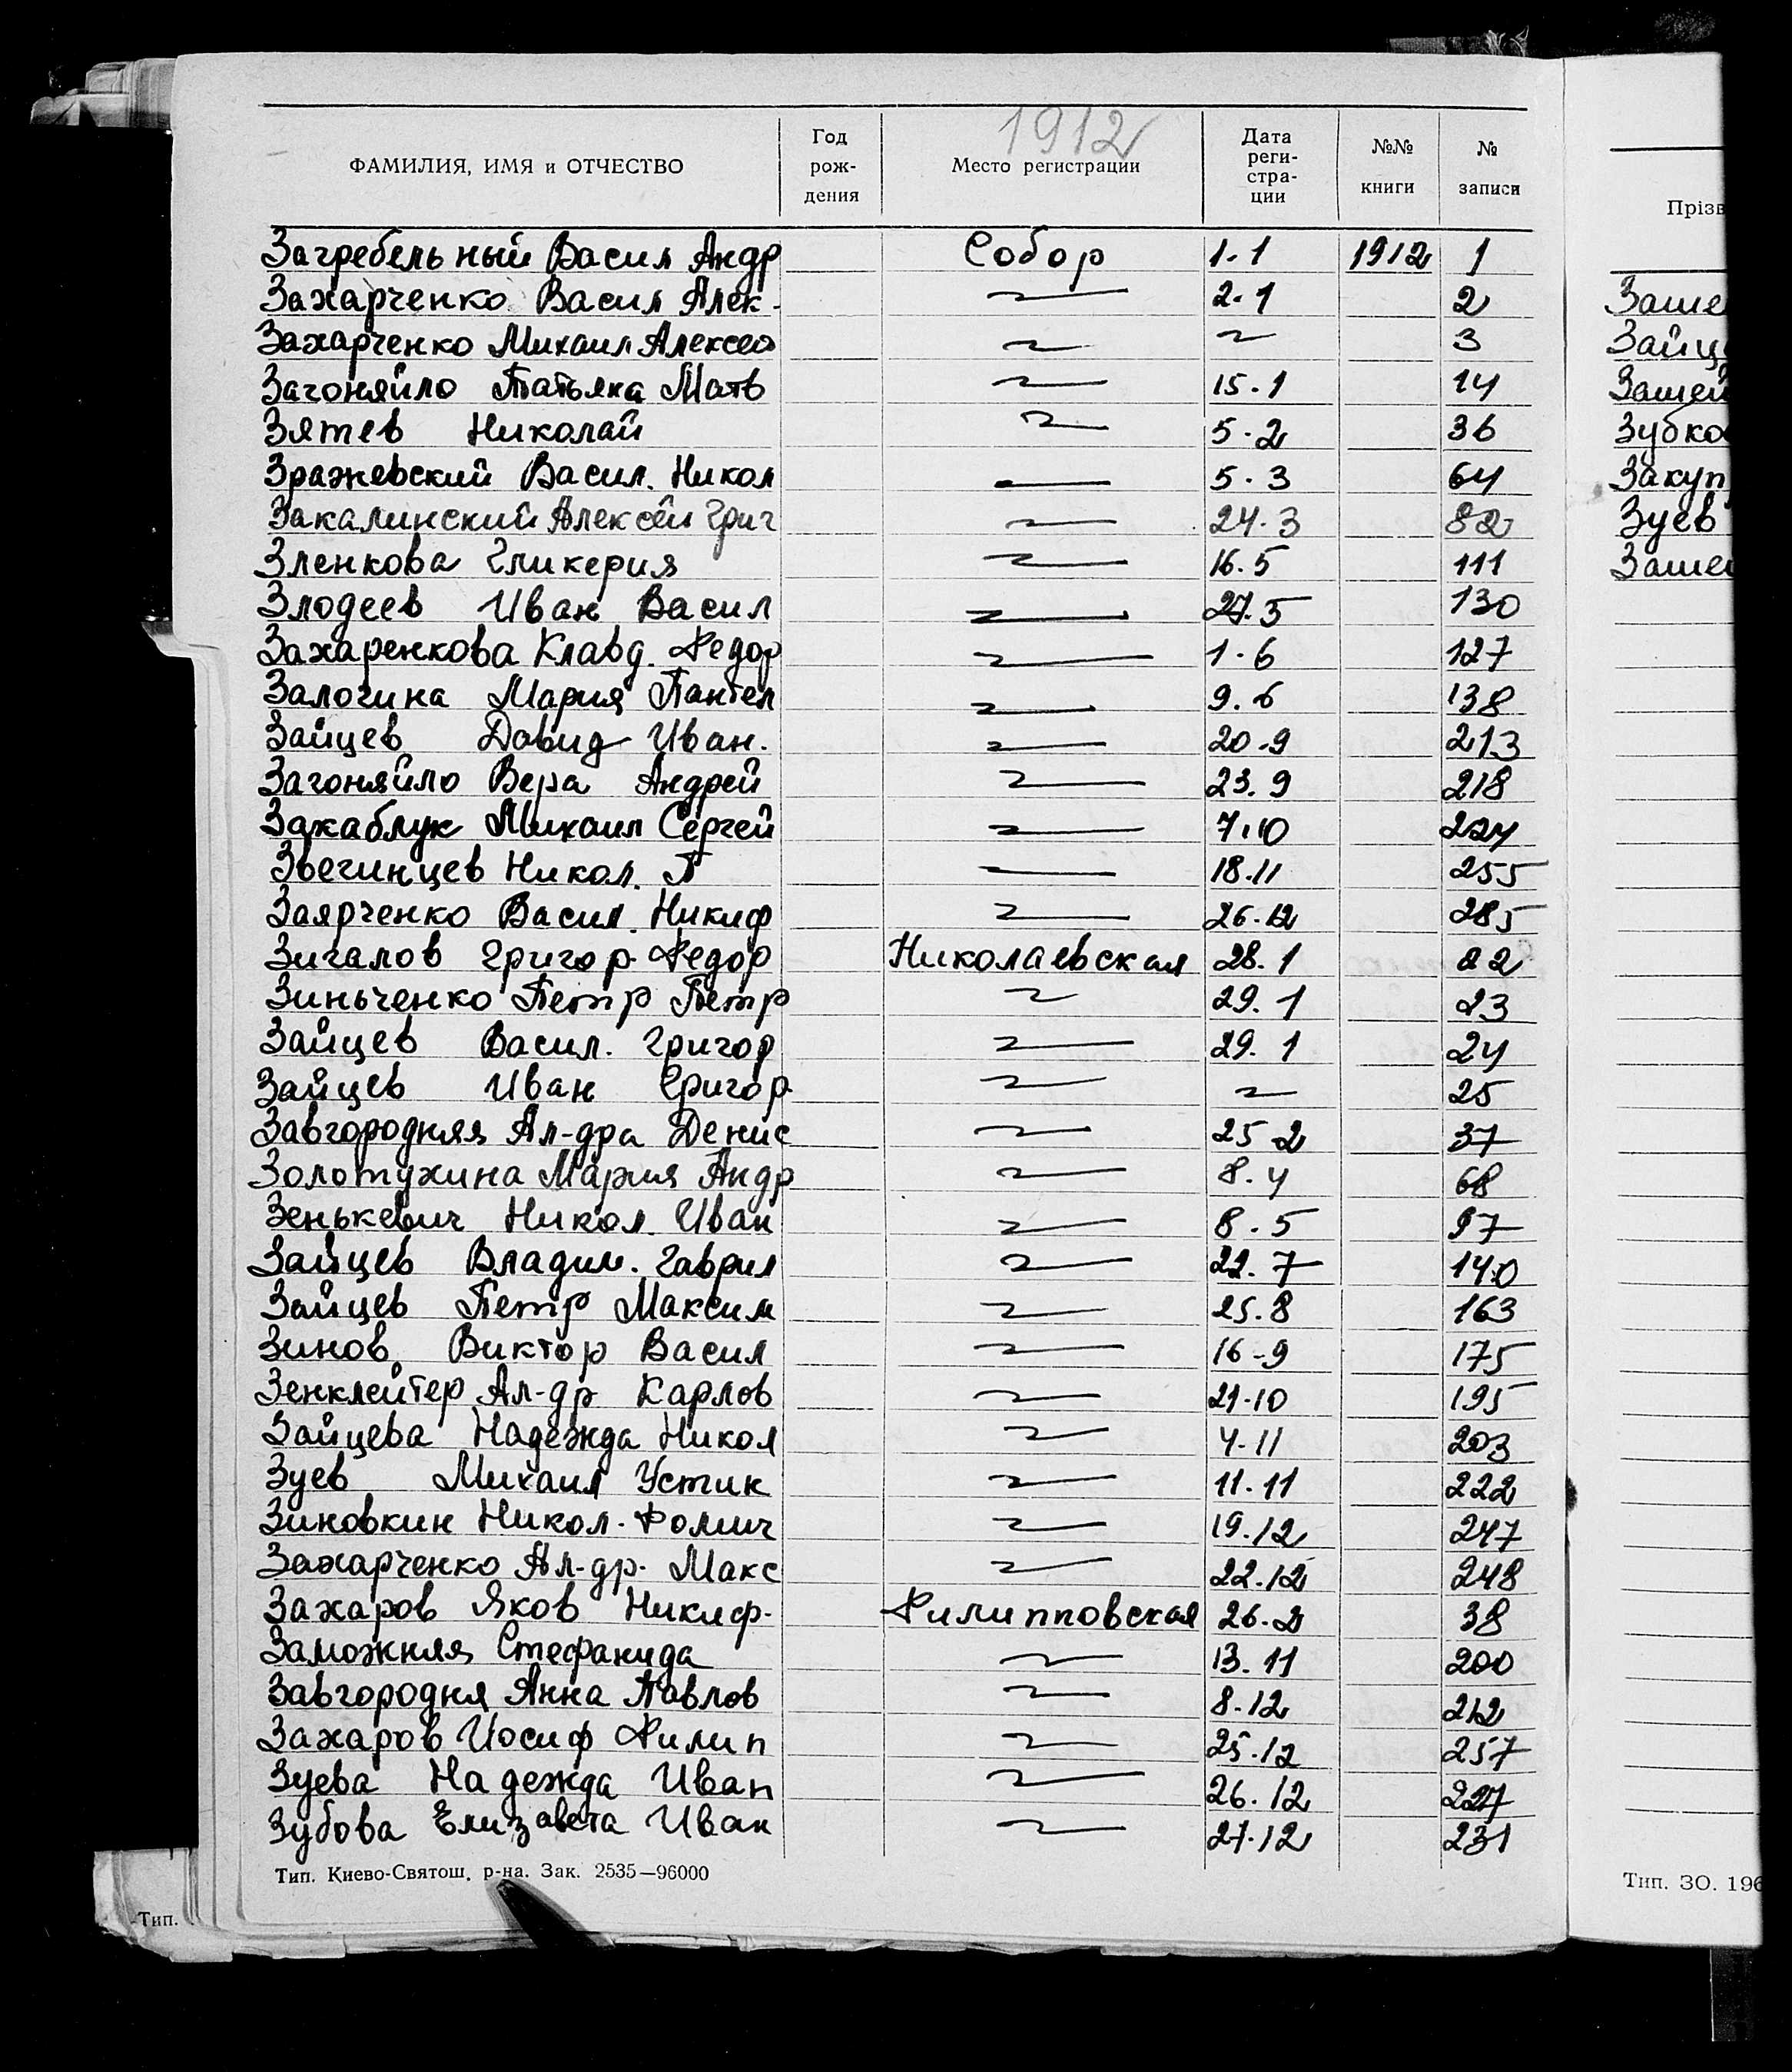 1912
ФАМИЛИЯ, ИМЯ и ОТЧЕСТВО Год рождения Место регистрации Дата регистрации №№ книги № записи
Загребельный Васил Андр Собор 1.1 1912 1
Захарченко Васил Алек. 2.1 2
Захарченко Михаил Алексеев 3
Загоняйло Татьяна Матв 15.1 14
Зятев Николай 5.2 36
Зражевский Васил. Никол 5.3 64
Закалинский Алексей Григ 24.3 82
Зленкова Гликерия 16.5 111
Злодеев Иван Васил 27.5 130
Захаренкова Клавд. Федор 1.6 127
Залогина Мария Пантел 9.6 138
Зайцев Давид Иван. 20.9 213
Загоняйло Вера Андрей 23.9 218
Зажаблук Михаил Сергей 7.10 224
Звегинцев Никол. П 18.11 255
Заярченко Васил. Никиф 26.12 285
Зигалов Григор. Федор Николаевская 28.1 22
Зиньченко Петр Петр 29.1 23
Зайцев Васил. Григор 29.1 24
Зайцев Иван Григор. 25
Завгородняя Ал-дра Денис 25 2 37
Золотухина Мария Андр 8.4 68
Зенькевич Никол. Иван 8.5 97
Зайцев Владим. Гаврил 22.7 140
Зайцев Петр Максим 25.8 163
Зинов Виктор Васил 16-9 175
Зенклейтер Ал-др Карлов 21-10 195
Зайцева Надежда Никол 4.11 203
Зуев Михаил Устин 11.11 222
Зиновкин Никол. Фомич 19.12 247
Захарченко Ал-др. Макс 22.12 248
Захаров Яков Никиф. Филипповская 26.2 38
Заможняя Стефанида 13.11 200
Завгородня Анна Павлов 8.12 212
Захаров Иосиф Филип 25.12 257
Зуева Надежда Иван 26.12 227
Зубова Елизавета Иван 27.12 231
Тип. Киево-Святош. р-на. Зак. 2535—96000
Тип.
Прізв
Заше
Зайц
Зашей
Зубко
Закуп
Зуев
Заше
Тип. ЗО. 196